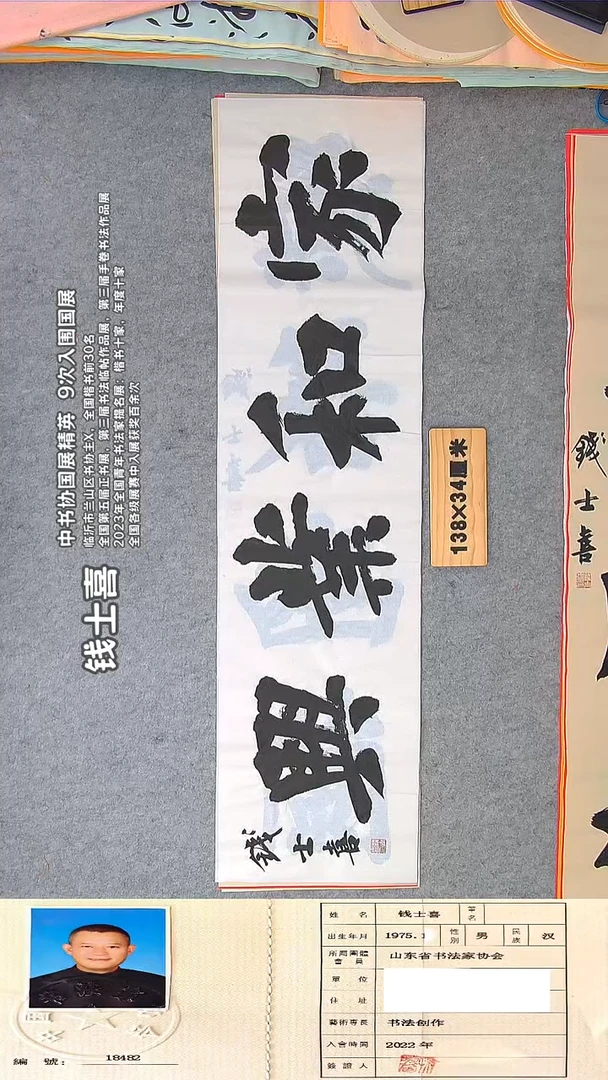 钱士喜
中书协国展精英 9次入围国展
临沂市兰山区书协主X、全国楷书前30名
全国第五届正书展、第三届书法临帖作品展、第三届手卷书法作品展
2023年全国青年书法家提名展：楷书十家，年度十家
全国各级展赛中入展获奖百余次
家和業興
錢士喜
138×34厘米
錢士喜
編 號：18482
姓 名 钱士喜 筆名
出生年月 1975.1 性别 男 民族 汉
所属團體會員 山东省书法家协会
單 位
住 址
藝術專長 书法创作
入會時間 2022 年
簽證人